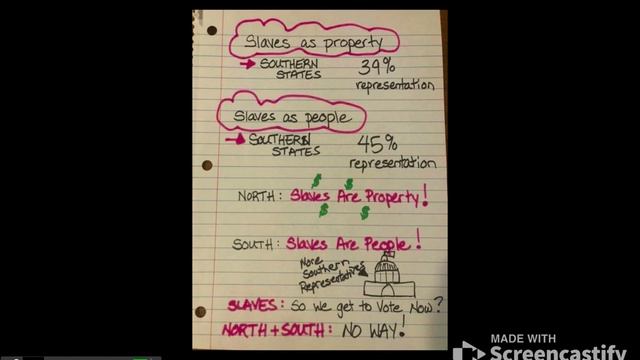 Slaves as property
→ SOUTHERN 39%
STATES representation
Slaves as people
→ SOUTHERN 45%
STATES representation
$ $
NORTH: Slaves Are Property!
$ $
SOUTH: Slaves Are People!
More
Southern
Representatives
SLAVES: So we get to Vote Now?
NORTH + SOUTH: NO WAY!
MADE WITH
Screencastify